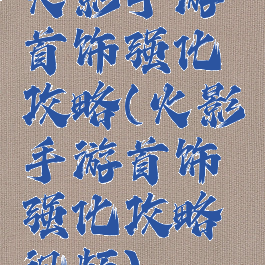 火影手游
首饰强化
攻略(火影
手游首饰
强化攻略
视频)